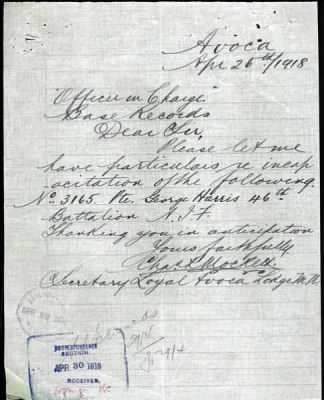 Avoca
Apr 26th/1918
Officer in Charge
Base Records
Dear Sir,
Please let me
have particulars re incap
acitation of the following.
No 3165. Pte. George Harris 46th
Battalion A.I.F.
Thanking you in anticipation
Yours faithfully
Chas
Secretary Loyal Avoca Lodge
29/4
CORRESPONDENCE
SECTION.
APR 30 1918
RECEIVED.